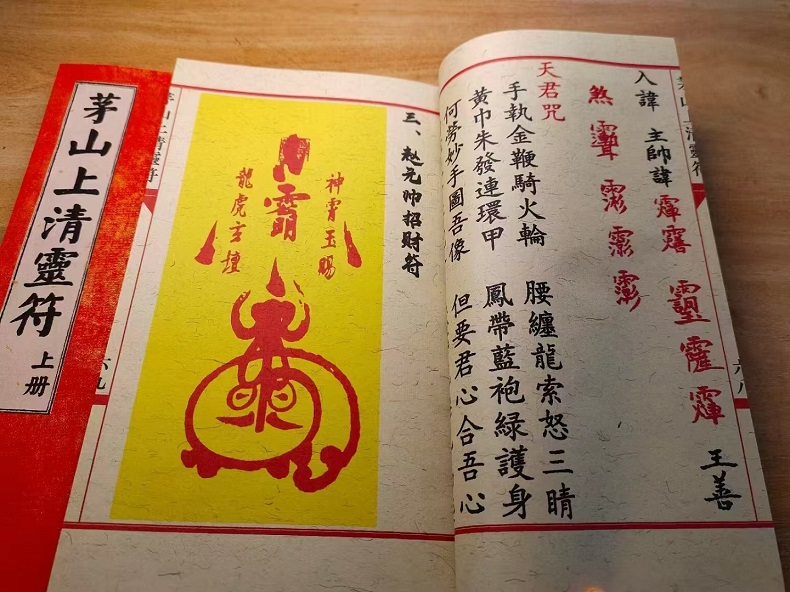 茅山上清靈符
六八
入諱 主帥諱 王善
煞
天君咒
手執金鞭騎火輪 腰纏龍索怒三睛
黃巾朱發連環甲 鳳帶藍袍綠護身
何勞妙手圖吾像 但要君心合吾心
三、赵元帅招財符
神霄玉賜
龍虎玄壇
茅山上清靈符
六九
茅山上清靈符 上册